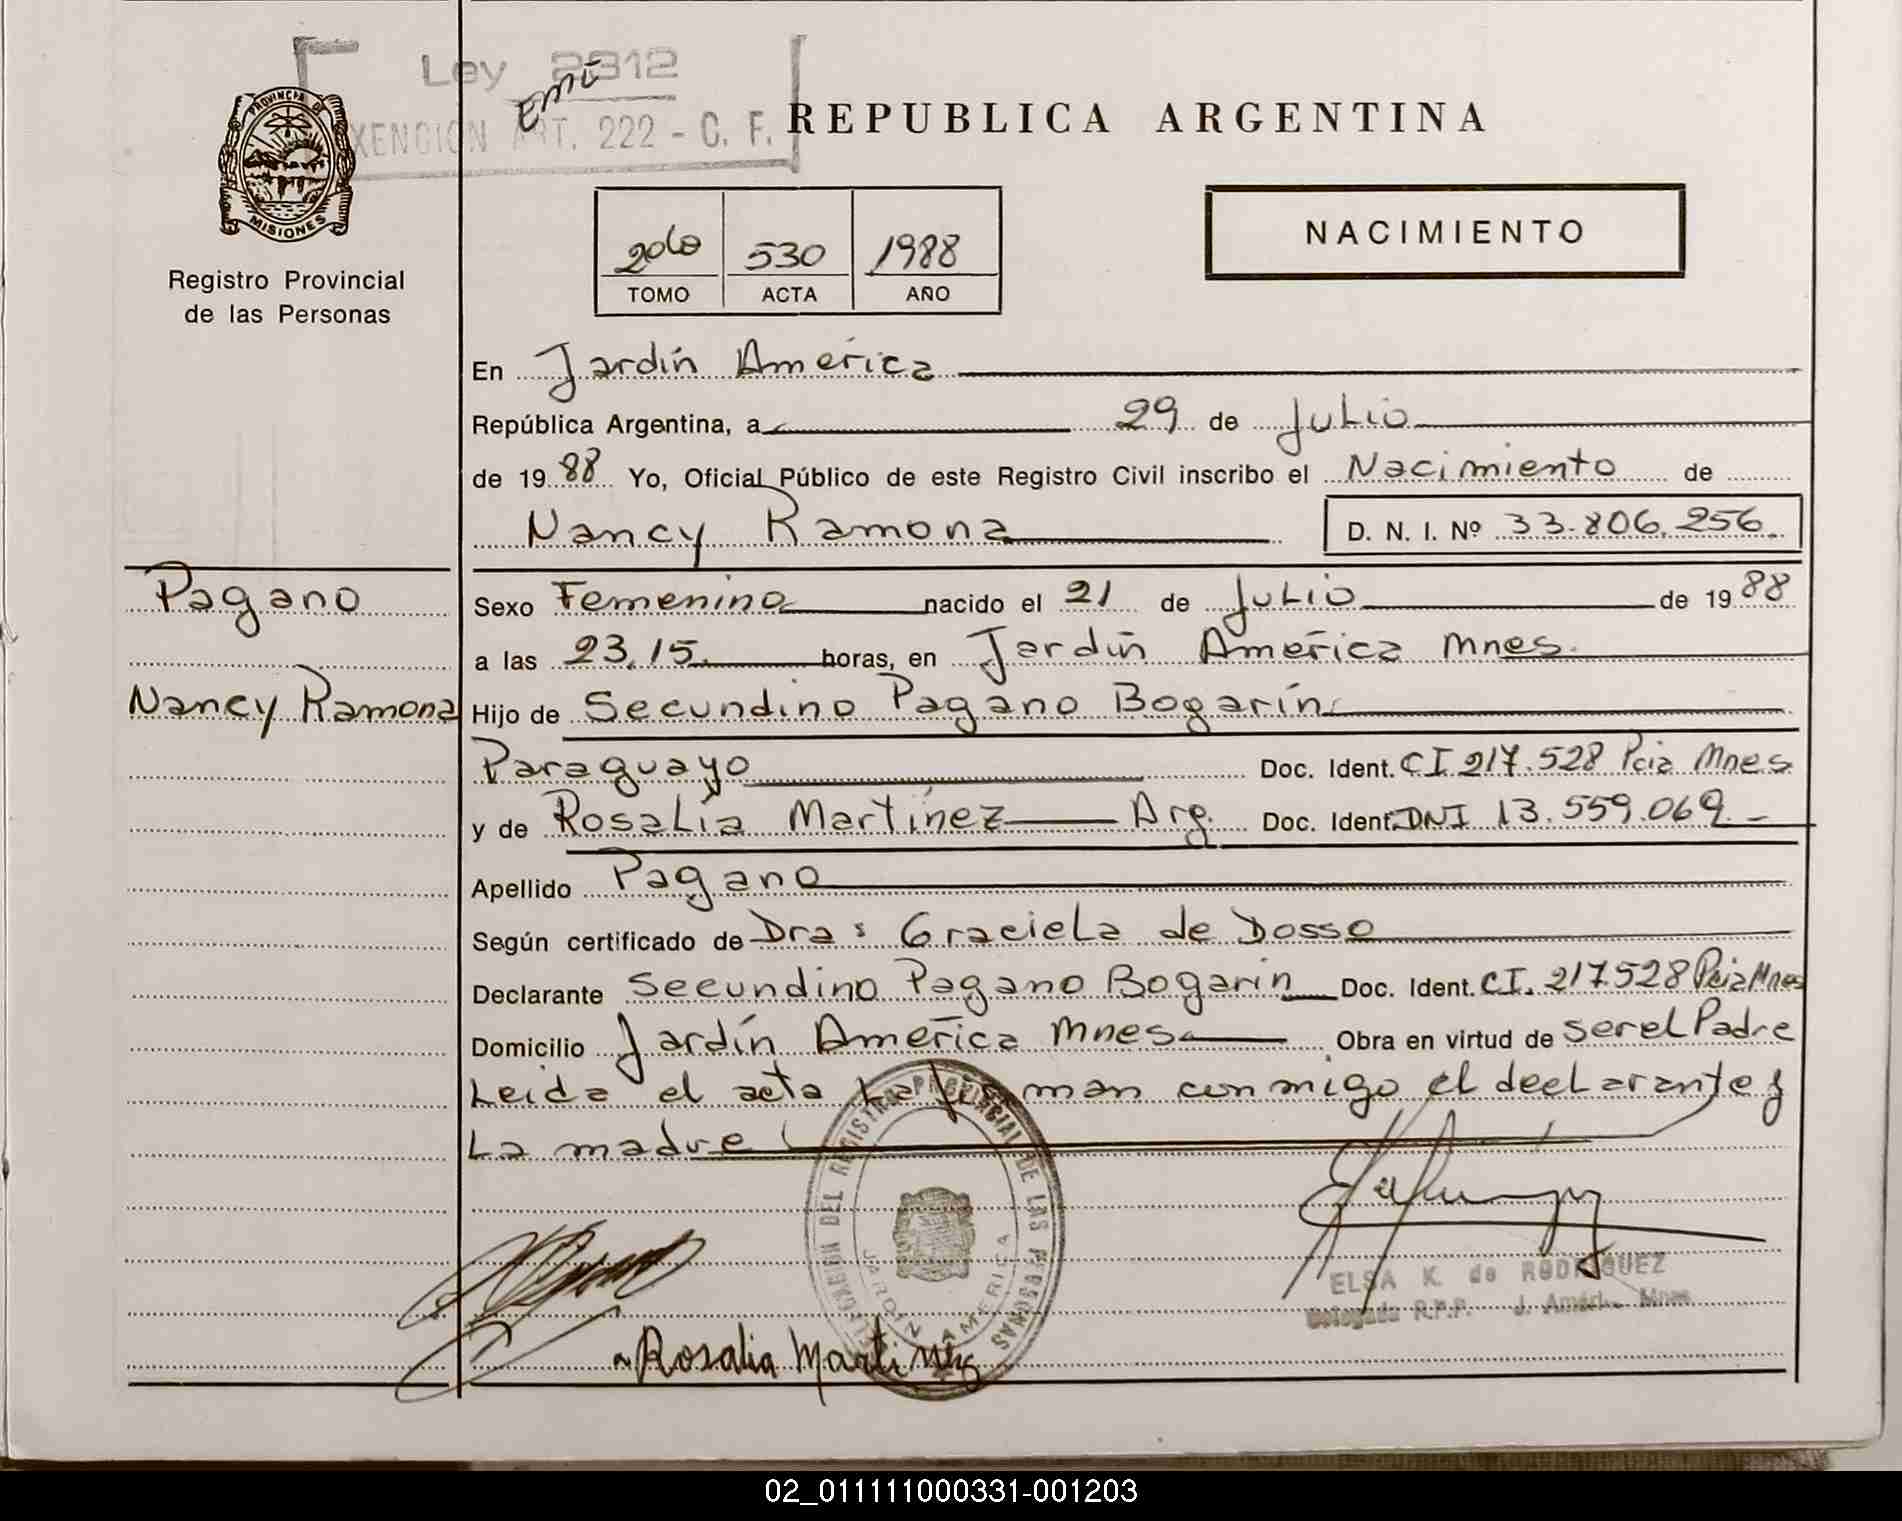 Ley 2312
EXENCION ART. 222 - C. F.
PROVINCIA DE
MISIONES
Registro Provincial
de las Personas
REPUBLICA ARGENTINA
NACIMIENTO
530 1988
TOMO ACTA AÑO
En Jardín América
República Argentina, a 29 de Julio
de 1988 Yo, Oficial Público de este Registro Civil inscribo el Nacimiento de
Nancy Ramona D. N. I. Nº 33.806.256
Pagano
Nancy Ramona
Sexo Femenino nacido el 21 de Julio de 1988
a las 23,15 horas, en Jardín América Mnes.
Hijo de Secundino Pagano Bogarín
Paraguayo Doc. Ident. CI 217.528 Pcia Mnes
y de Rosalía Martínez Arg. Doc. Ident. DNI 13.559.069
Apellido Pagano
Según certificado de Dra: Graciela de Dosso
Declarante Secundino Pagano Bogarín Doc. Ident. CI. 217.528 Pcia Mnes
Domicilio Jardín América Mnes Obra en virtud de ser el Padre
Leida el acta La firman conmigo el declarante y
La madre
DELEGACION DEL REGISTRO PROVINCIAL DE LAS PERSONAS
JARDIN AMERICA
ELSA K. de RODRIGUEZ
Delegada R.P.P. J. Améri. Mnes
Rosalia Martinez
02_011111000331-001203